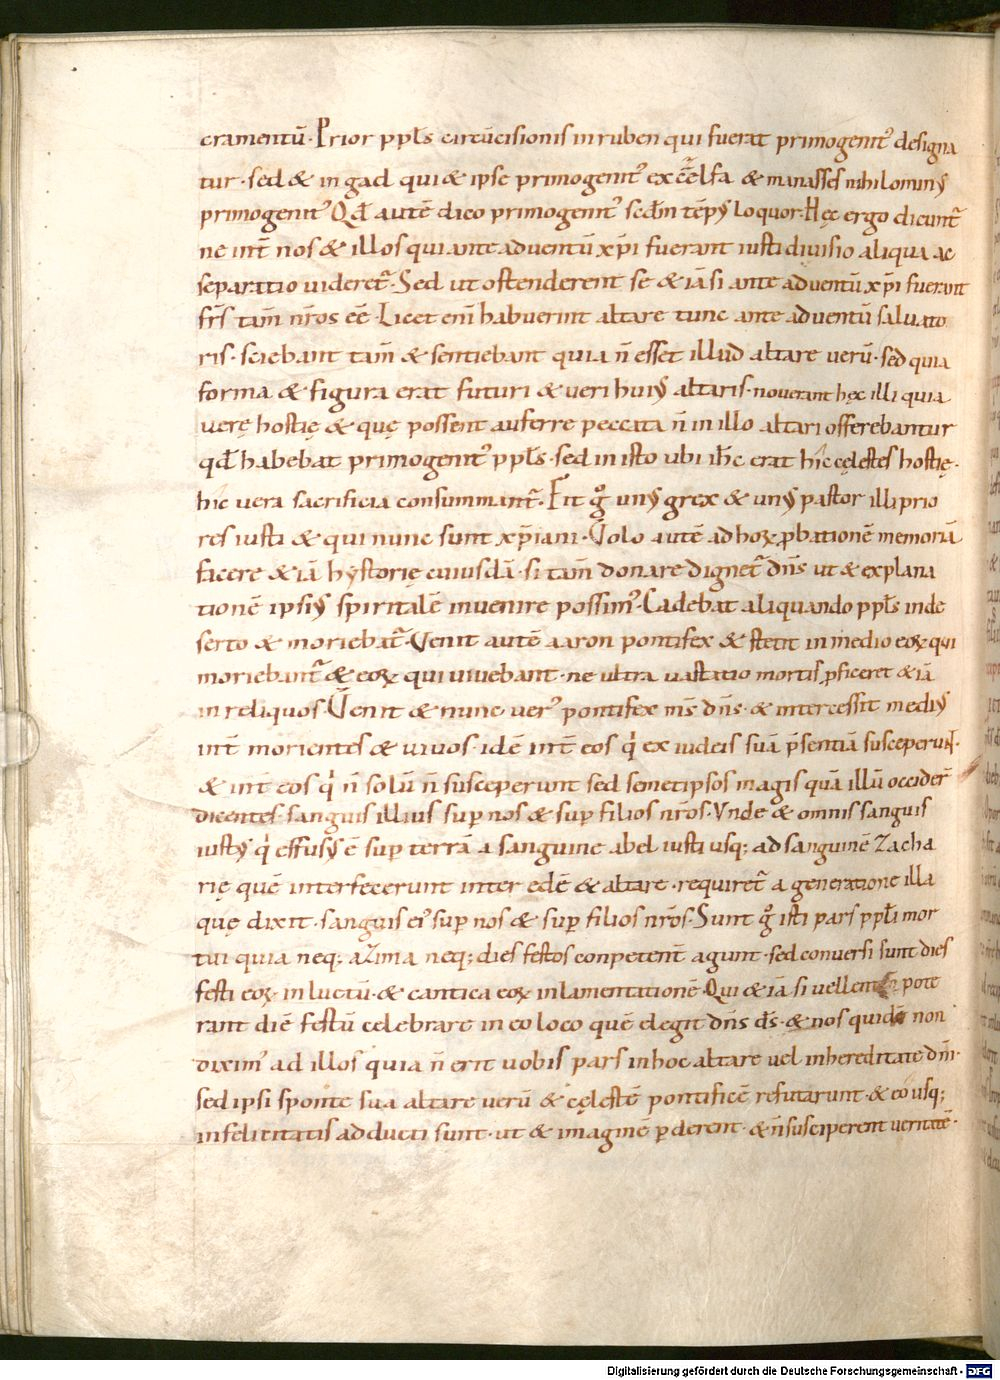 cramentū. Prior ppłs circūcisionis in ruben qui fuerat primogenit᾿ designa
tur. sed & in gad qui & ipse primogenit᾿ ex elfa & manasses nihilominꝰ
primogenit᾿ Qđ autē dico primogenit᾿ scđm tēpꝰ loquor. Hęc ergo dicunt᾿
ne int̄ nos & illos qui ante adventū xp̄i fuerant iusti divisio aliqua ac
separatio videret᾿. Sed ut ostenderent se & iā si ante adventū xp̄i fuerant
frs̄ tam̄ nr̄os eē. Licet eni habuerint altare tunc ante adventū salvato
ris. sciebant tam̄ & sentiebant quia n̄ esset illud altare verū. sed quia
forma & figura erat futuri & veri huiꝰ altaris. noverant hęc illi quia
verę hostię & quę possent auferre peccata n̄ in illo altari offerebantur
qđ habebat primogenit᾿ ppłs. sed in isto ubi ihc̄ erat hic cęlestes hostię.
hic vera sacrificia consummant᾿. Fit gͦ unꝰ grex & unꝰ pastor illi prio
res iusti & qui nunc sunt xp̄iani. Volo autē ad hoꝝ ꝓbationē memoriā
facere & iā hystorię cuiusdā. si tam̄ donare dignet᾿ dn̄s ut & explana
tionē ipsiꝰ spiritalē invenire possim᾿. Cadebat aliquando ppłs in de
serto & moriebat᾿. Venit autē aaron pontifex & stetit in medio eoꝝ qui
moriebant᾿ & eoꝝ qui vivebant. ne ultra vastatio mortis ꝓficeret & iā
in reliquos. Venit & nunc ver᾿ pontifex ms̄ dn̄s. & intercessit mediꝰ
int̄ morientes & vivos. idē int̄ eos qͥ ex iudeis suā p̄sentiā susceperunt.
& int̄ eos qͥ n̄ solū n̄ susceperunt sed semetipsos magis quā illū occider̄
dicentes. sanguis illius sup nos & sup filios nr̄os. Unde & omnis sanguis
iustꝰ qͥ effusꝰ ē sup terrā a sanguine abel iusti usq; ad sanguinē Zacha
rię quē interfecerunt inter edē & altare. requiret᾿ a generatione illa
quę dixit. sanguis ei᾿ sup nos & sup filios nr̄os. Sunt gͦ isti pars ppłi mor
tui quia neq; azima neq; dies festos conpetent̄ agunt. sed conversi sunt dies
festi eoꝝ in luctū. & cantica eoꝝ in lamentationē. Qui & iā si vellent n̄ pote
rant diē festū celebrare in eo loco quē elegit dn̄s ds̄. & nos quidē non
dixim᾿ ad illos quia n̄ erit vobis pars in hoc altare vel in hereditate dn̄i.
sed ipsi sponte sua altare verū & cęlestē pontificē refutarunt. & eo usq;
infelicitatis adducti sunt. ut & imagine ꝑderent. & n̄ susciperent veritatē.
Digitalisierung gefördert durch die Deutsche Forschungsgemeinschaft - DFG